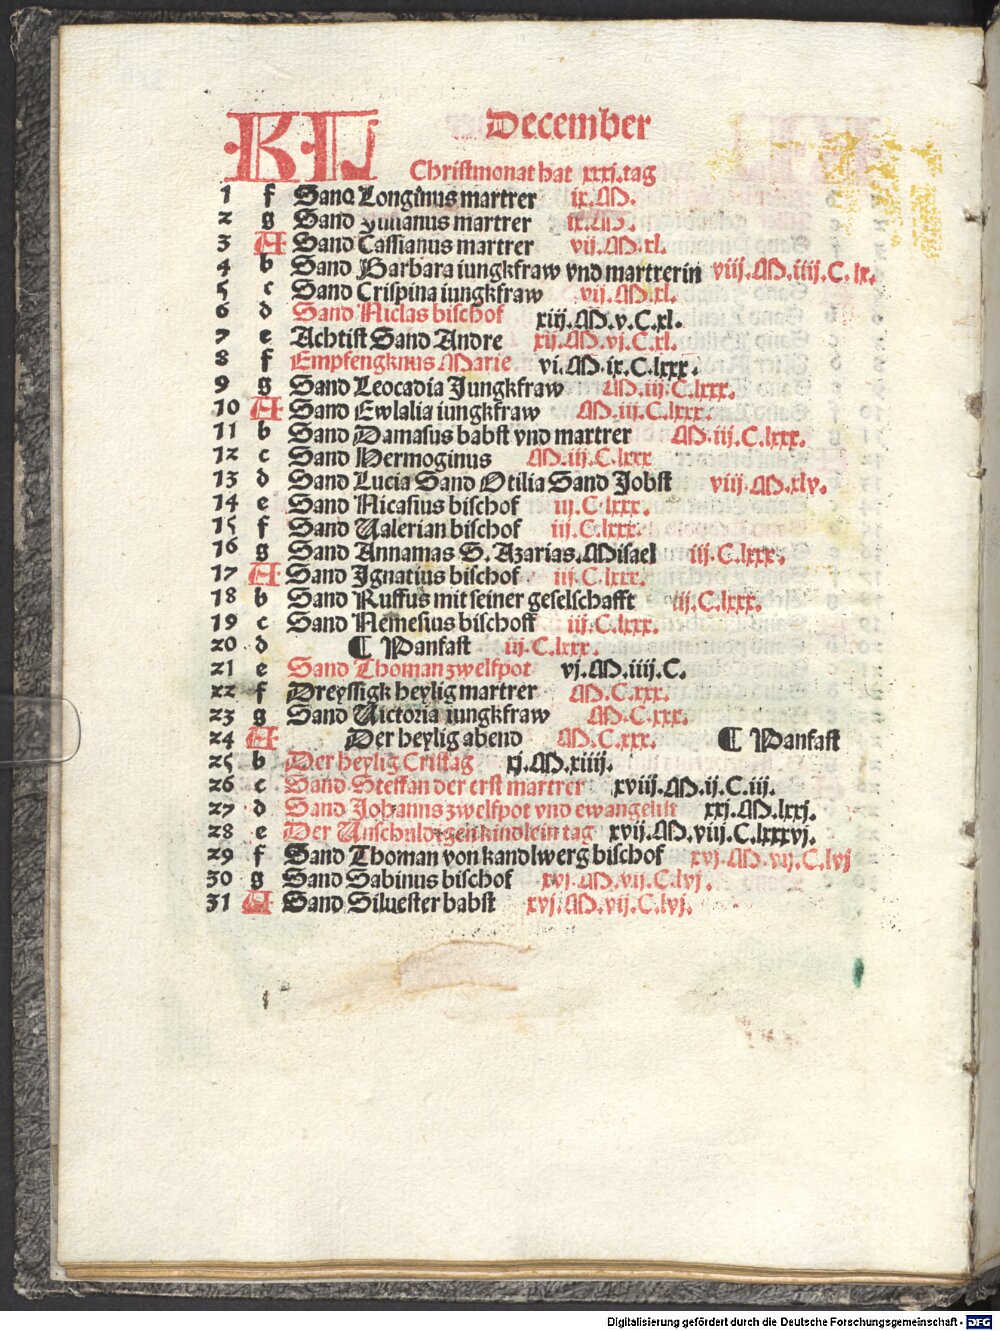 KL December
Christmonat hat xxxj.tag
1 f Sand Longinus martrer ix.M.
2 g Sand Julianus martrer ix.M.
3 A Sand Cassianus martrer vij.M.xl.
4 b Sand Barbara iungkfraw vnd martrerin viij.M.iiij.C.lx.
5 c Sand Crispina iungkfraw vij.M.xl.
6 d Sand Niclas bischof xiij.M.v.C.xl.
7 e Achtist Sand Andre xij.M.vj.C.xl.
8 f Empfengknus Marie vi.M.ix.C.lxxx.
9 g Sand Leocadia Jungkfraw M.iij.C.lxxx.
10 A Sand Ewlalia iungkfraw M.iij.C.lxxx.
11 b Sand Damasus babst vnd martrer M.iij.C.lxxx.
12 c Sand Hermoginus M.iij.C.lxxx
13 d Sand Lucia Sand Otilia Sand Jobst viij.M.xlv.
14 e Sand Nicasius bischof iij.C.lxxx.
15 f Sand Ualerian bischof iij.C.lxxx.
16 g Sand Annamas S. Azarias.Misael iij.C.lxxx.
17 A Sand Ignatius bischof iij.C.lxxx.
18 b Sand Ruffus mit seiner geselschafft iij.C.lxxx.
19 c Sand Nemesius bischoff iij.C.lxxx.
20 d ¶ Panfast iij.C.lxxx.
21 e Sand Thoman zwelfpot vj.M.iiij.C.
22 f Dreyssigk heylig martrer M.C.xxx.
23 g Sand Uictoria iungkfraw M.C.xxx.
24 A Der heylig abend M.C.xxx. ¶ Panfast
25 b Der heylig Cristag xj.M.xiiij.
26 c Sand Steffan der erst martrer xviij.M.ij.C.iij.
27 d Sand Johanns zwelfpot vnd ewangelist xxj.M.lxxj.
28 e Der Unschuldigen kindlein tag xvij.M.viij.C.lxxxvj.
29 f Sand Thoman von kandlwerg bischof xvj.M.vij.C.lvj
30 g Sand Sabinus bischof xvj.M.vij.C.lvj.
31 A Sand Siluester babst xvj.M.vij.C.lvj.
Digitalisierung gefördert durch die Deutsche Forschungsgemeinschaft - DFG